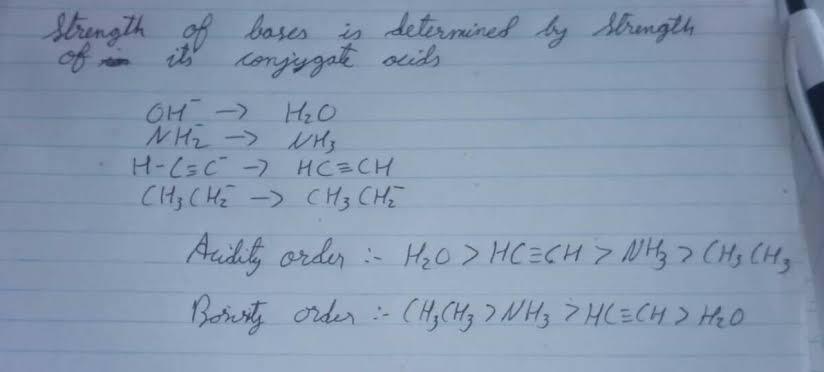 Strength of bases is determined by Strength
of its conjygate acids
OH⁻ → H₂O
NH₂⁻ → NH₃
H-C≡C⁻ → HC≡CH
CH₃CH₂⁻ → CH₃CH₂⁻
Acidity order :- H₂O > HC≡CH > NH₃ > CH₃CH₃
Basisty order :- CH₃CH₃ > NH₃ > HC≡CH > H₂O